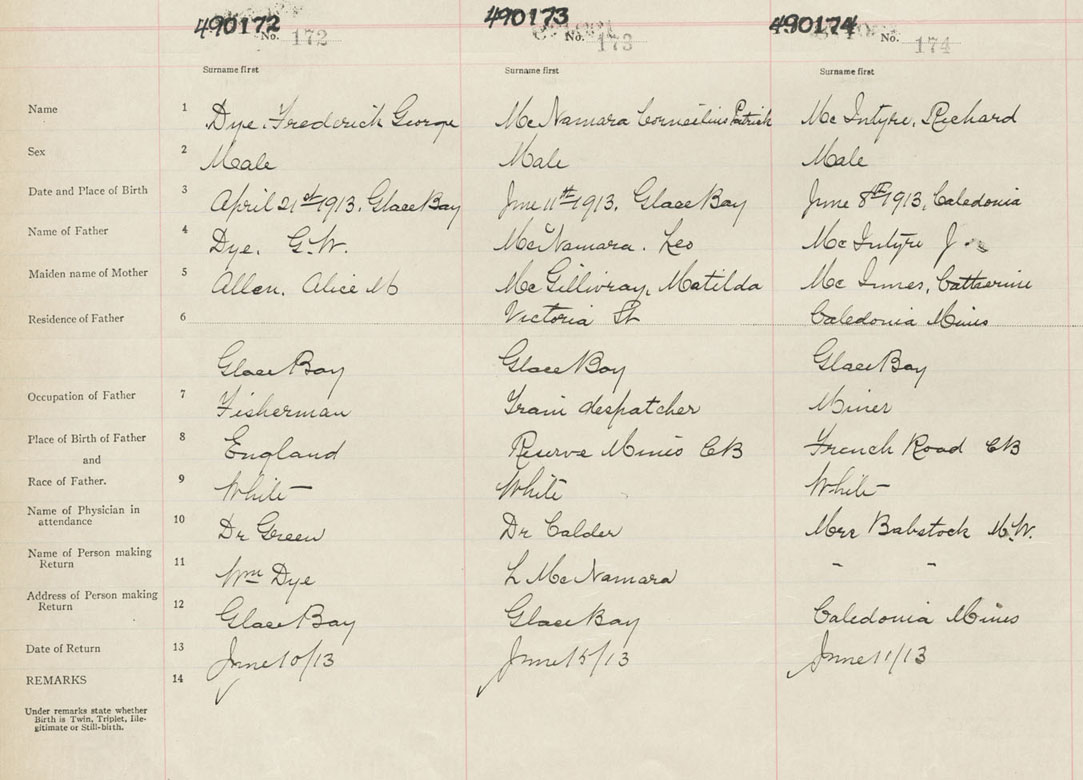 490172 490173 490174
No. 172 No. 173 No. 174
Surname first Surname first Surname first
Name 1 Dye, Frederick George McNamara Corneilius Patrick McIntyre, Richard
Sex 2 Male Male Male
Date and Place of Birth 3 April 21st 1913, Glace Bay June 11th 1913, Glace Bay June 8th 1913, Caledonia
Name of Father 4 Dye, G.W. McNamara, Leo McIntyre J.
Maiden name of Mother 5 Allen, Alice M McGillivray, Matilda McInnes, Cattherine
Residence of Father 6 Victoria St Caledonia Mines
Glace Bay Glace Bay Glace Bay
Occupation of Father 7 Fisherman Train despatcher Miner
Place of Birth of Father 8 England Reserve Mines CB French Road CB
and
Race of Father. 9 White White White
Name of Physician in
attendance 10 Dr Green Dr Calder Mrs Babstock M.W.
Name of Person making
Return 11 Wm Dye L McNamara " "
Address of Person making
Return 12 Glace Bay Glace Bay Caledonia Mines
Date of Return 13 June 10/13 June 15/13 June 11/13
REMARKS 14
Under remarks state whether
Birth is Twin, Triplet, Ille-
gitimate or Still-birth.